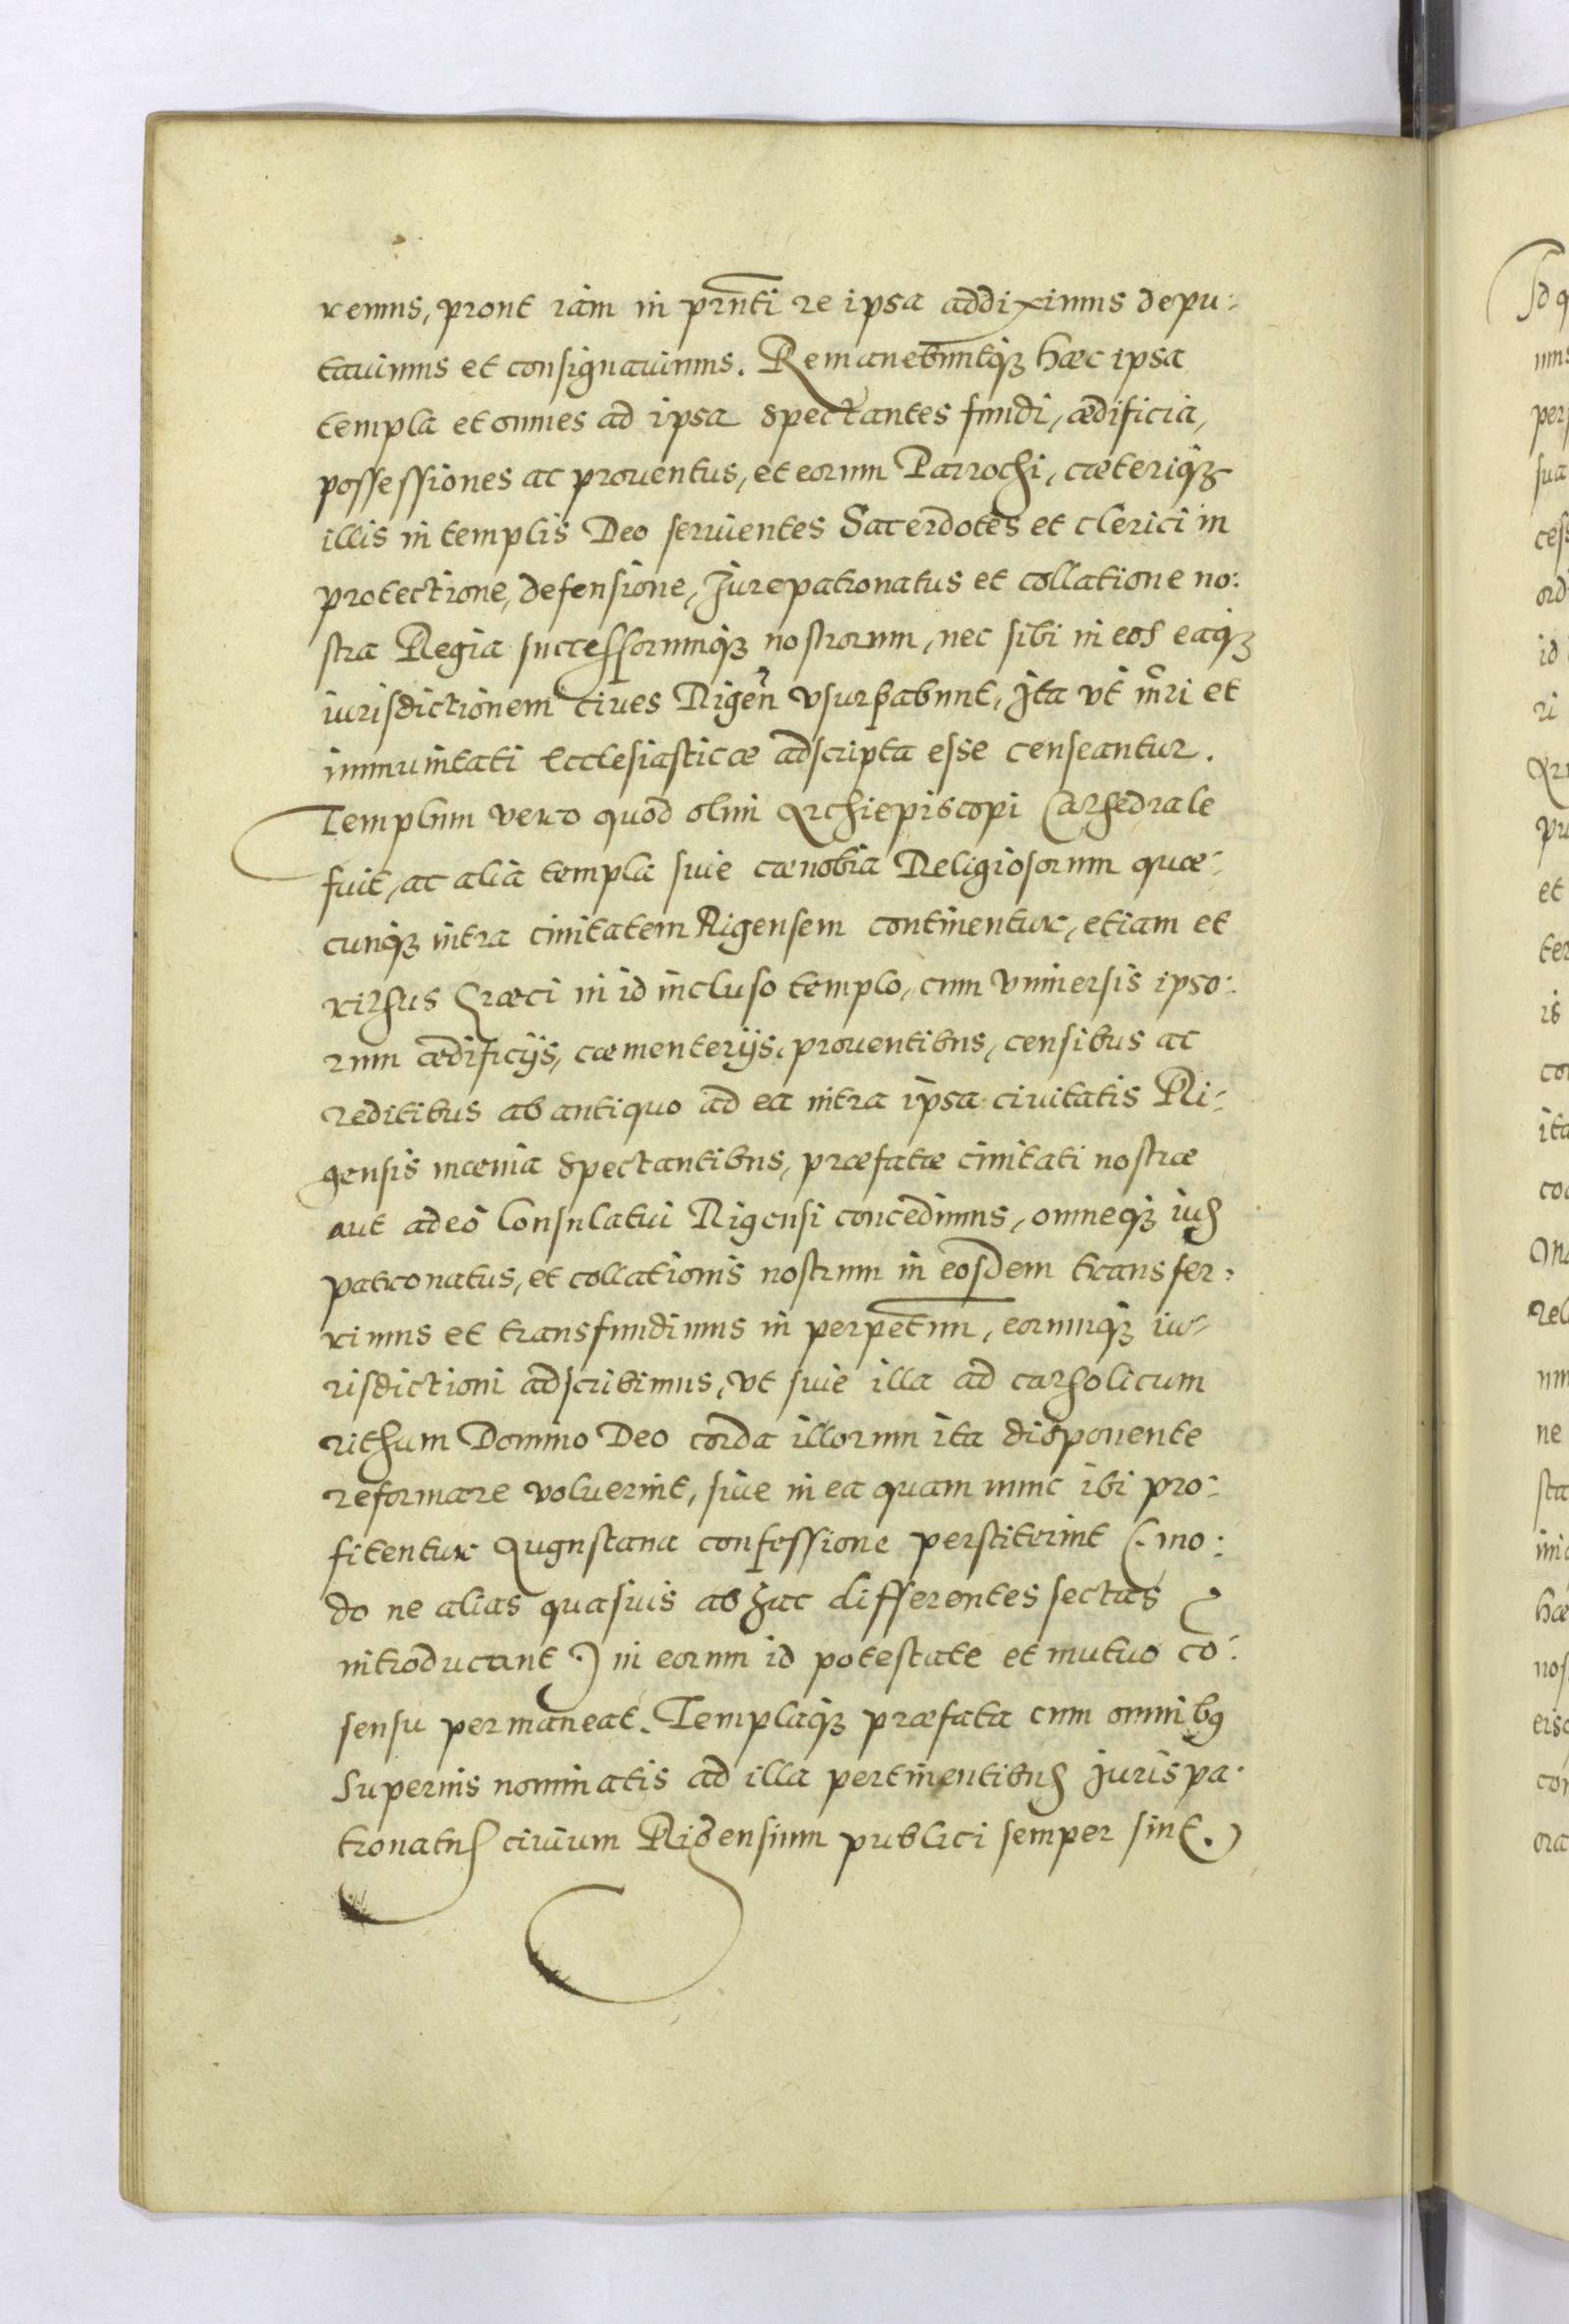 remus, prout iam in prnti re ipsa addiximus depu:
tauimus et consignauimus. Remanebuntq́ꝫ hæc ipsa
templa et omnes ad ipsa spectantes fundi, ædificia,
possessiones ac prouentus, et eorum Parrochi, cæteriq́ꝫ
illis in templis Deo seruientes Sacerdotes et clerici in
protectione, defensione, Jurepatronatus et collatione no:
stra Regia successorumq́ꝫ nostrorum, nec sibi in eos eaq́ꝫ
iurisdictionem ciues Rigen̄ vsurpabunt, Jta vt nr̄i et
immunitati Ecclesiasticæ adscripta esse censeantur.
Templum vero quod olim Archiepiscopi Cathedrale
fuit, ac alia templa siue cænobia Religiosorum quæ:
cunq́ꝫ intra ciuitatem Rigensem continentur, etiam et
rithus Græci in id incluso templo, cum vniuersis ipso:
rum ædificijs, cæmenterijs, prouentibus, censibus ac
reditibus ab antiquo ad ea intra ipsa ciuitatis Ri:
gensis mœnia spectantibus, præfatæ ciuitati nostræ
aut adeò Consulatui Rigensi concedimus, omneq́ꝫ ius
patronatus, et collationis nostrum in eosdem transfer:
rimus et transfundimus in perpetuum, eorumq́ꝫ iu:
risdictioni adscribimus, vt siue illa ad catholicum
rithum Domino Deo corda illorum ita disponente
reformare voluerint, siue in ea quam nunc ibi pro:
fitentur Augustana confessione perstiterint (: mo:
do ne alias quasuis ab hac differentes sectas
introducant :) in eorum id potestate et mutuo cō:
sensu permaneat. Templaq́ꝫ præfata cum omnibꝰ
superius nominatis ad illa pertinentibus Juris pa:
tronatus ciuium Rigensium publici semper sint.
Jd q
mus
per
sua
ces
ordi
id
ri
pu
et
ter
is
co
ita
rel
ne
sta
hæ
nos
con
ora